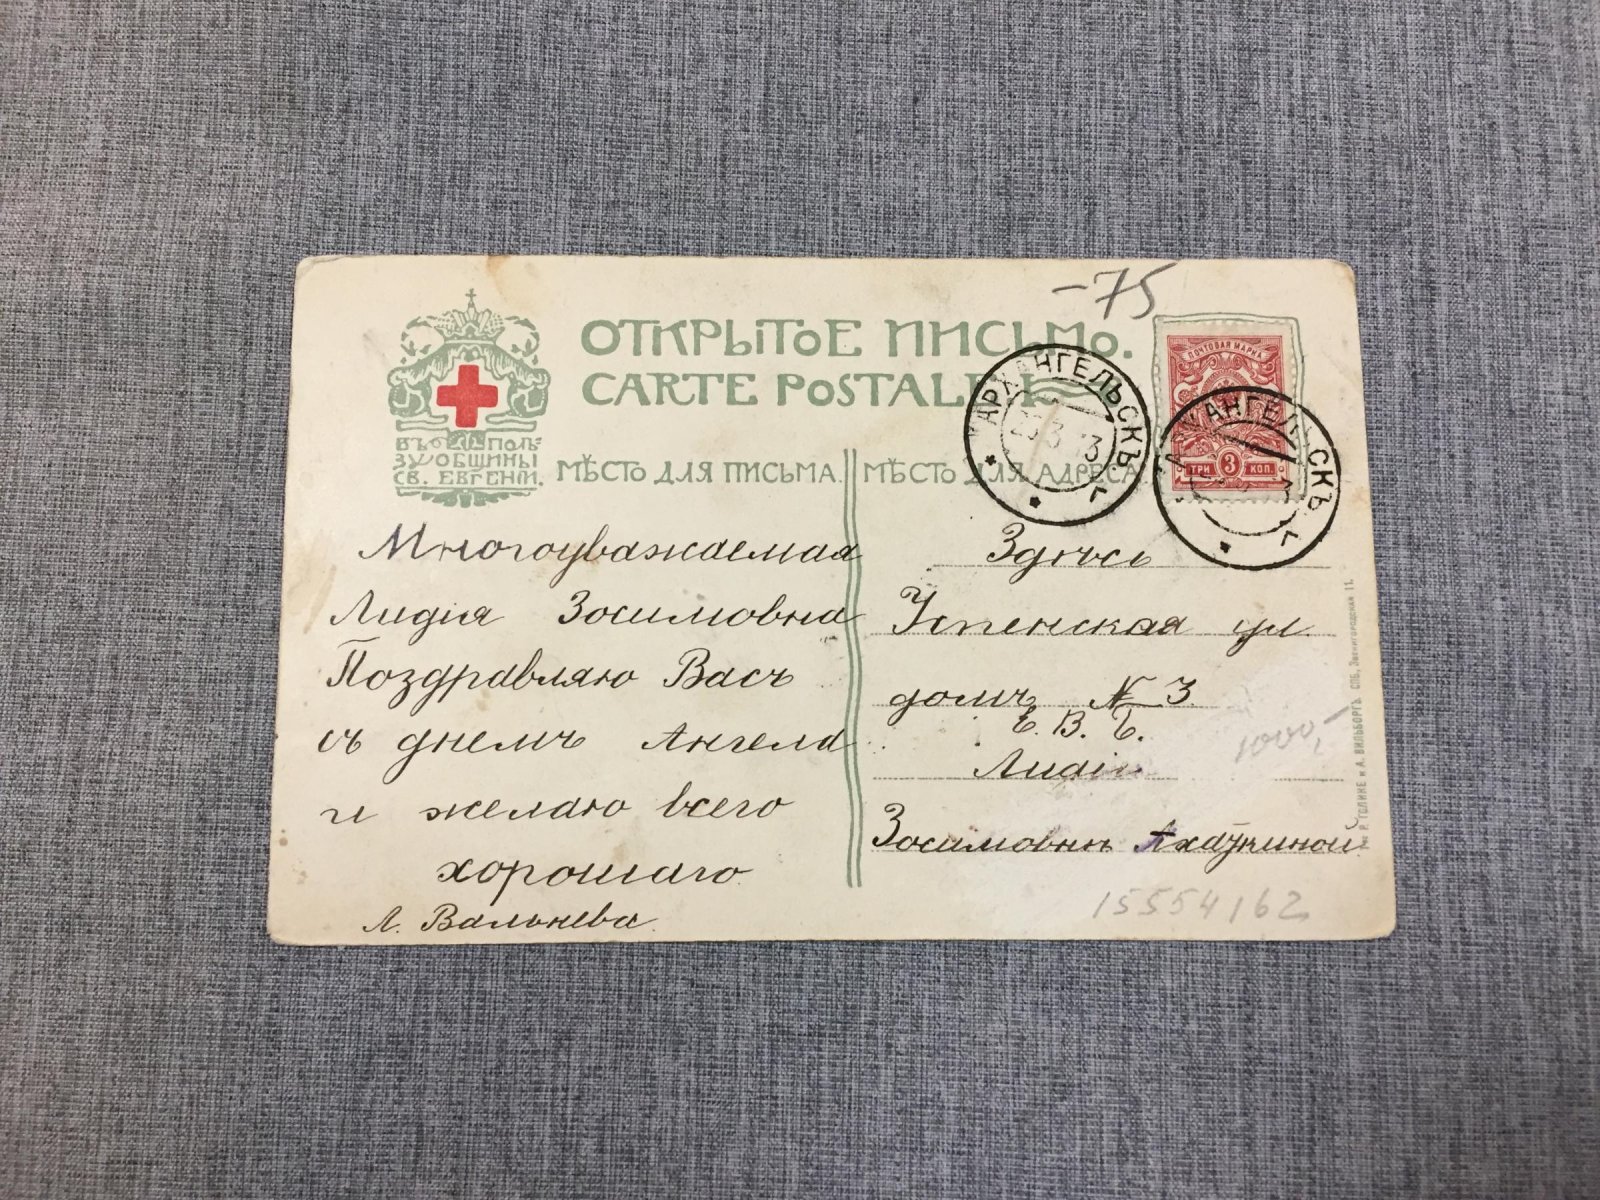 -75
ОТКРЫТОЕ ПИСЬМО.
CARTE POSTALE
ВЪ ПОЛЬ-
ЗУ ОБЩИНЫ
СВ. ЕВГЕНІИ.
МѢСТО ДЛЯ ПИСЬМА.
МѢСТО ДЛЯ АДРЕСА
АРХАНГЕЛЬСКЪ Г
ПОЧТОВАЯ МАРКА
ТРИ 3 КОП.
АРХАНГЕЛЬСКЪ Г
Многоуважаемая
Лидія Зосимовна
Поздравляю Васъ
съ днемъ Ангела
и желаю всего
хорошаго
Л. Вальнева.
Здѣсь
Успенская ул.
домъ № 3.
Е. В. Б.
Лидіи
Зосимовнѣ
1000,-
15554162
Р. ГОЛИКЕ и А. ВИЛЬБОРГЪ. СПБ. Звенигородская 11.